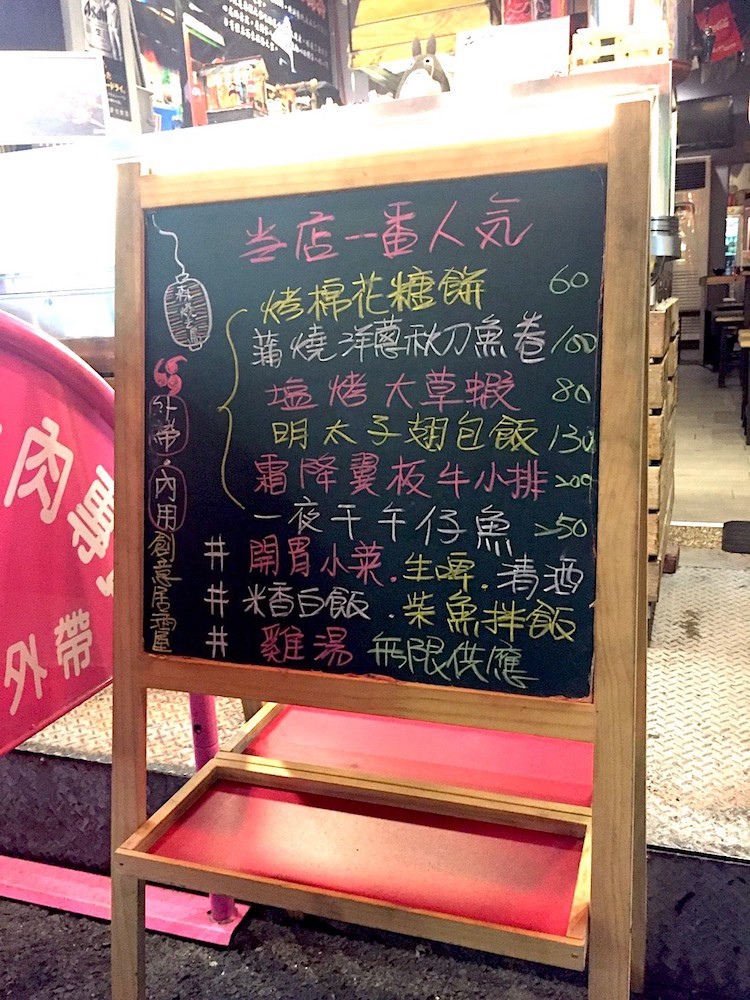 当店一番人気
烤棉花糖餅 60
蒲燒洋蔥秋刀魚卷 100
塩烤大草蝦 80
明太子翅包飯 130
霜降翼板牛小排 200
一夜干午仔魚 250
# 開胃小菜.生啤.清酒
# 米香白飯.柴魚拌飯
# 雞湯 無限供應
外帶·內用
創意居酒屋
肉專
外帶